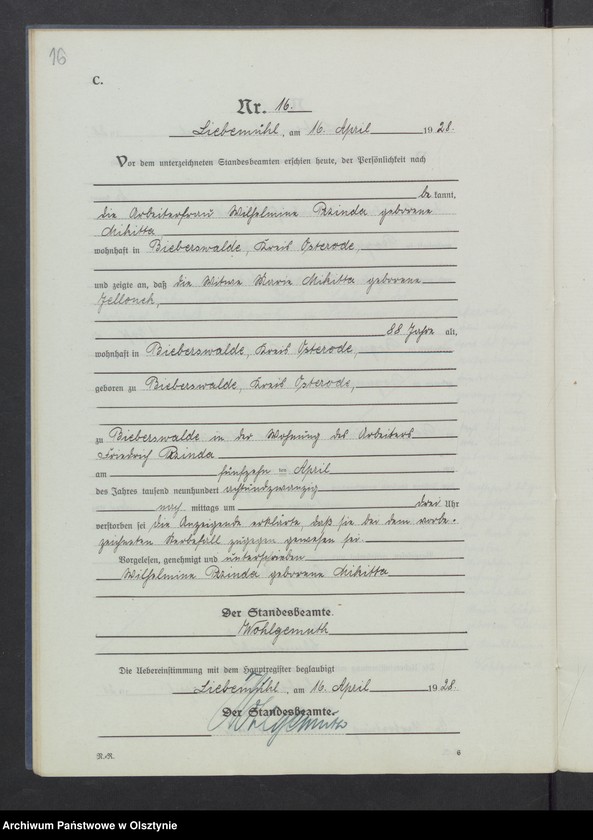 16
C.
Nr. 16.
Liebemühl, am 16. April 1928.
Vor dem unterzeichneten Standesbeamten erschien heute, der Persönlichkeit nach
bekannt,
die Arbeiterfrau Wilhelmine Rzinda geborene
Mikitta,
wohnhaft in Bieberswalde, Kreis Osterode,
und zeigte an, daß die Witwe Marie Mikitta geborene
Jellonek,
88 Jahre alt,
wohnhaft in Bieberswalde, Kreis Osterode,
geboren zu Bieberswalde, Kreis Osterode,
zu Bieberswalde in der Wohnung des Arbeiters
Friedrich Rzinda
am fünfzehn ten April
des Jahres tausend neunhundert achtundzwanzig
nach mittags um drei Uhr
verstorben sei die Anzeigende erklärte, daß sie bei dem vorbe-
zeichneten Sterbefall zugegen gewesen sei.
Vorgelesen, genehmigt und unterschrieben
Wilhelmine Rzinda geborene Mikitta
Der Standesbeamte.
Wohlgemuth
Die Uebereinstimmung mit dem Hauptregister beglaubigt
Liebemühl, am 16. April 1928.
Der Standesbeamte.
Wohlgemuth
R.-R.
6
Archiwum Państwowe w Olsztynie